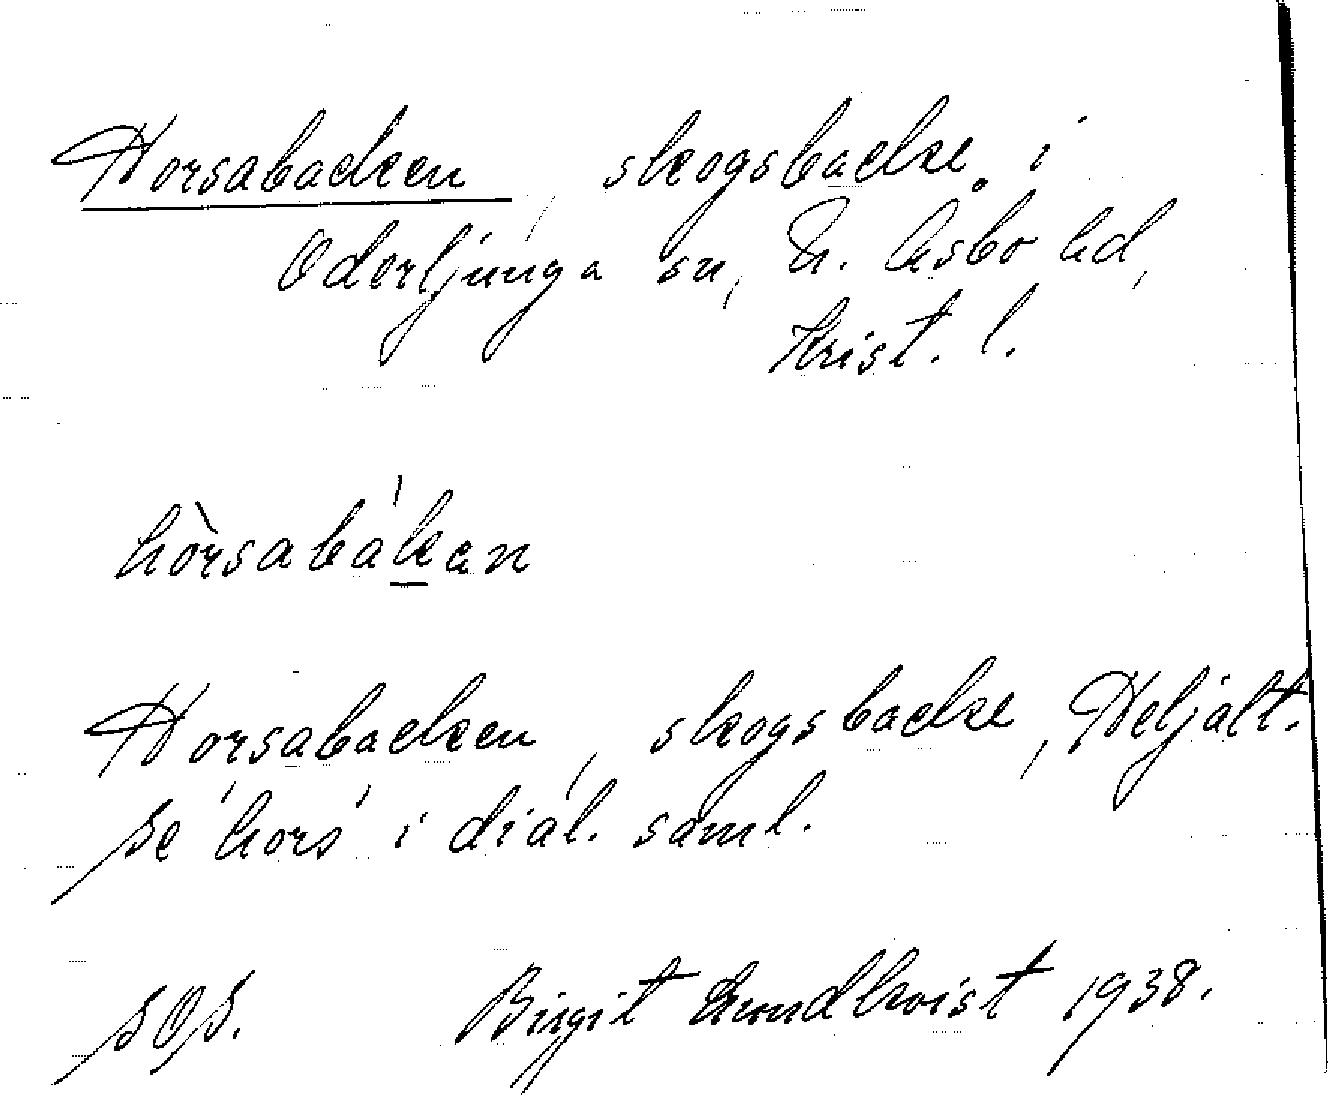 Horsabacken, skogsbacke i
Oderljunga sn, N. Åsbo hd,
Krist. l.
hòrsabák̲an
Horsabacken, skogsbacke, Heljalt.
Se 'hors' i dial. saml.
SOS. Birgit Lundkvist 1938.